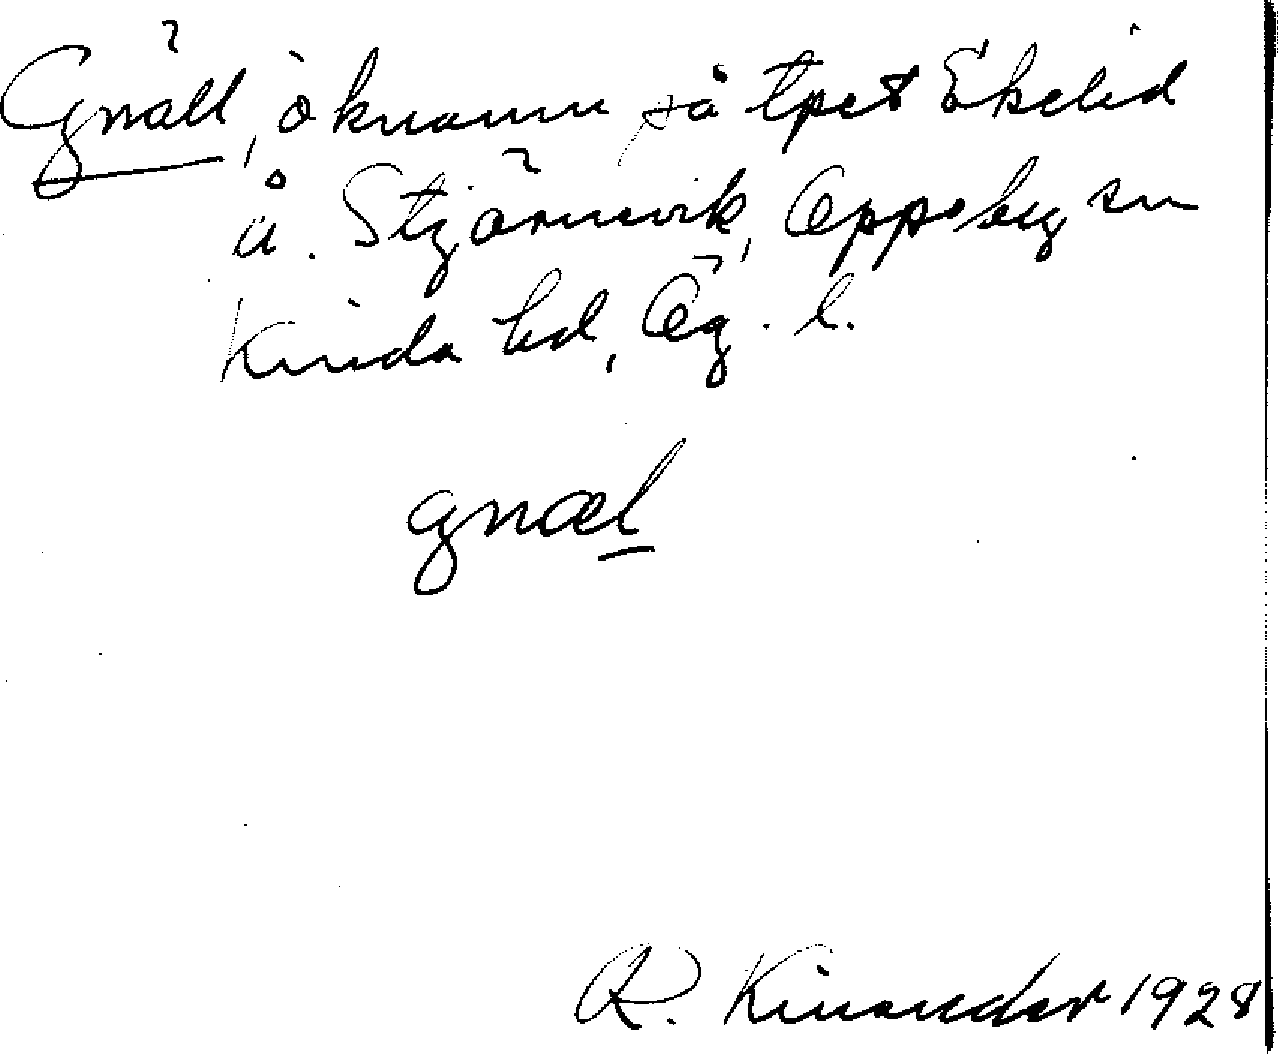 Gnäll, öknamn på tpet Ekelid
å. Stjärnevik, Oppeby sn
Kinda hd, Ög. l.
gnæl
R. Kinander 1928